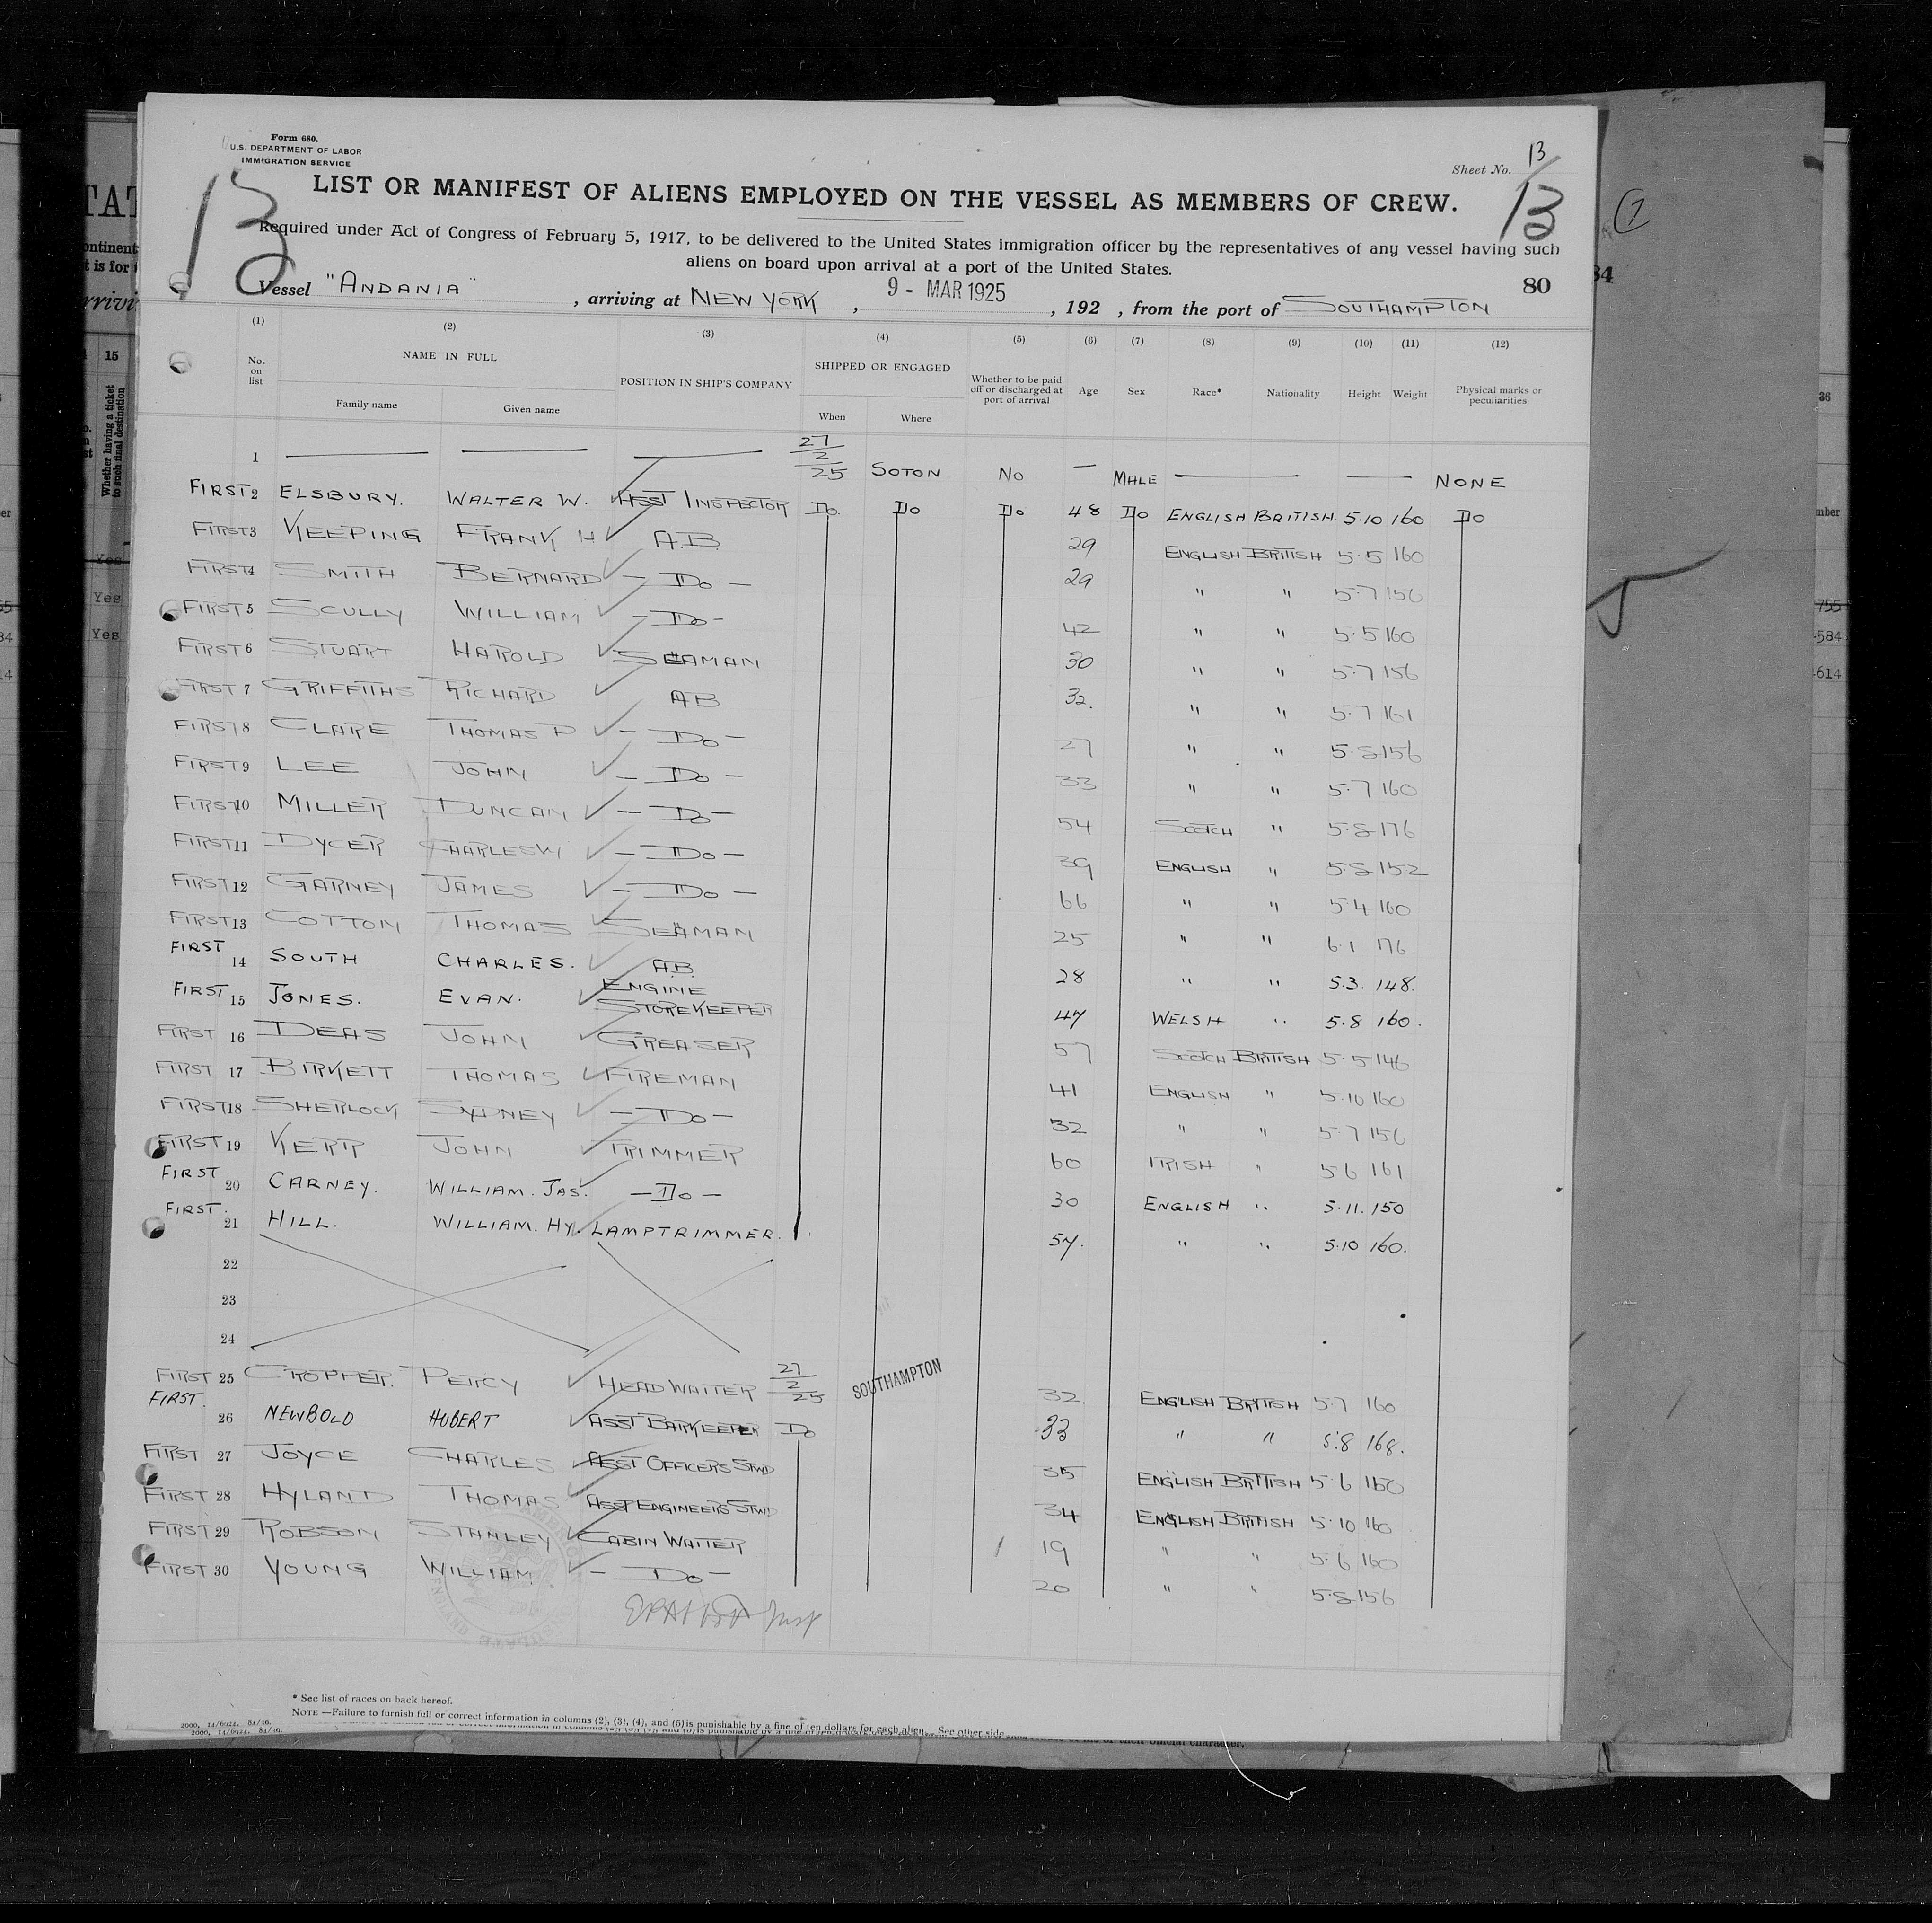 Form 680.
U.S. DEPARTMENT OF LABOR
IMMIGRATION SERVICE
Sheet No. 13
13
13
LIST OR MANIFEST OF ALIENS EMPLOYED ON THE VESSEL AS MEMBERS OF CREW.
Required under Act of Congress of February 5, 1917, to be delivered to the United States immigration officer by the representatives of any vessel having such
aliens on board upon arrival at a port of the United States.
80
Vessel "ANDANIA", arriving at NEW YORK, 9 - MAR 1925, 192 , from the port of SOUTHAMPTON
(1) (2) (3) (4) (5) (6) (7) (8) (9) (10) (11) (12)
No. on list NAME IN FULL POSITION IN SHIP'S COMPANY SHIPPED OR ENGAGED Whether to be paid off or discharged at port of arrival Age Sex Race* Nationality Height Weight Physical marks or peculiarities
Family name Given name When Where
1 — — — 27/2/25 SOTON NO — MALE — — NONE
FIRST 2 ELSBURY. WALTER W. ASST INSPECTOR DO. DO DO 48 DO ENGLISH BRITISH. 5.10 160 DO
FIRST 3 KEEPING FRANK H A.B. 29 ENGLISH BRITISH 5.5 160
FIRST 4 SMITH BERNARD — DO — 29 " " 5.7 156
FIRST 5 SCULLY WILLIAM — DO — 42 " " 5.5 160
FIRST 6 STUART HAROLD SEAMAN 30 " " 5.7 156
FIRST 7 GRIFFITHS RICHARD AB 32. " " 5.7 161
FIRST 8 CLARE THOMAS P — DO — 27 " " 5.8 156
FIRST 9 LEE JOHN — DO — 33 " " 5.7 160
FIRST 10 MILLER DUNCAN — DO — 54 SCOTCH " 5.8 176
FIRST 11 DYCER CHARLES W — DO — 39 ENGLISH " 5.8 152
FIRST 12 GARNEY JAMES — DO — 66 " " 5.4 160
FIRST 13 COTTON THOMAS SEAMAN 25 " " 6.1 176
FIRST 14 SOUTH CHARLES. A.B. 28 " " 5.3. 148.
FIRST 15 JONES. EVAN. ENGINE STOREKEEPER 47 WELSH " 5.8 160.
FIRST 16 DEAS JOHN GREASER 57 SCOTCH BRITISH 5.5 146
FIRST 17 BIRKETT THOMAS FIREMAN 41 ENGLISH " 5.10 160
FIRST 18 SHERLOCK SYDNEY — DO — 32 " " 5.7 156
FIRST 19 KERR JOHN TRIMMER 60 IRISH " 5.6 161
FIRST 20 CARNEY. WILLIAM. JAS. — DO — 30 ENGLISH " 5.11. 150
FIRST. 21 HILL. WILLIAM. HY. LAMPTRIMMER. 57. " " 5.10 160.
22
23
24
FIRST 25 CROPPER. PERCY HEAD WAITER 27/2/25 SOUTHAMPTON 32. ENGLISH BRITISH 5.7 160
FIRST. 26 NEWBOLD HUBERT ASST BARKEEPER DO 33 " " 5.8 168.
FIRST 27 JOYCE CHARLES ASST OFFICERS STWD 35 ENGLISH BRITISH 5.6 160
FIRST 28 HYLAND THOMAS ASST ENGINEERS STWD 34 ENGLISH BRITISH 5.10 160
FIRST 29 ROBSON STANLEY CABIN WAITER 19 " " 5.6 160
FIRST 30 YOUNG WILLIAM — DO — 20 " " 5.8 156
* See list of races on back hereof.
NOTE —Failure to furnish full or correct information in columns (2), (3), (4), and (5) is punishable by a fine of ten dollars for each alien. See other side